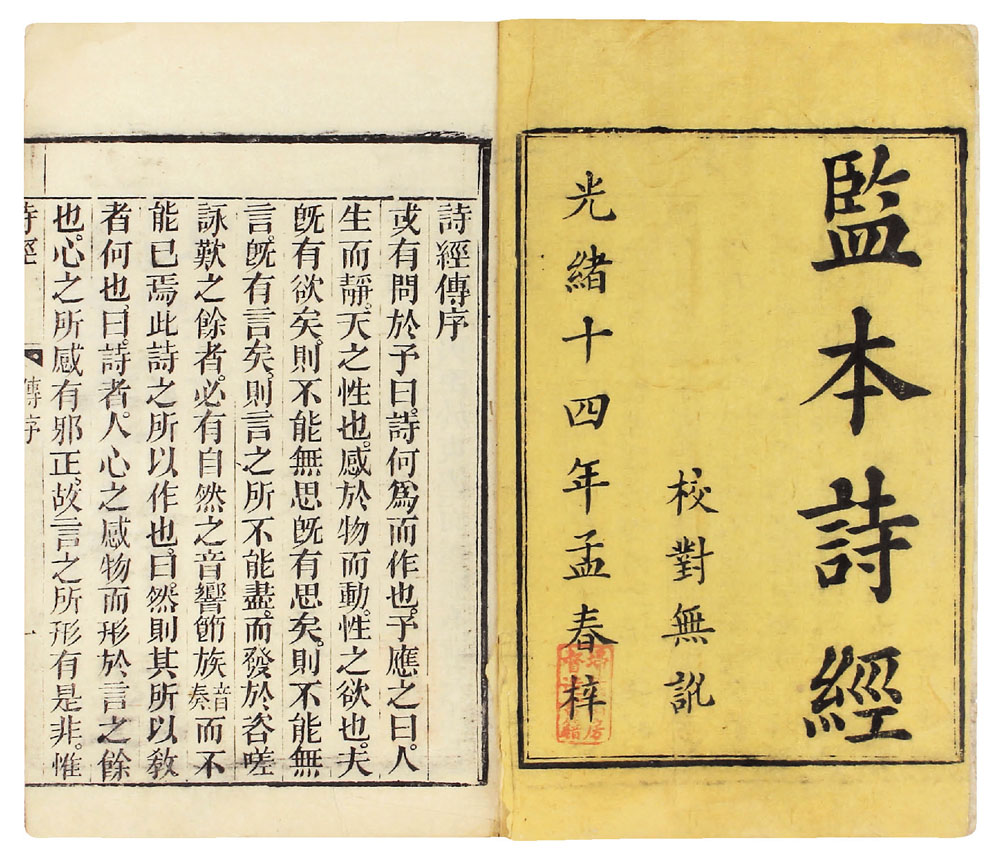 監本詩經
校對無訛
光緒十四年孟春梓
詩經傳序
或有問於予曰。詩何爲而作也。予應之曰。人
生而靜。天之性也。感於物而動。性之欲也。夫
旣有欲矣。則不能無思旣有思矣。則不能無
言。旣有言矣。則言之所不能盡。而發於咨嗟
詠歎之餘者。必有自然之音響節族音奏而不
能已焉此詩之所以作也。曰。然則其所以敎
者何也。曰。詩者。人心之感物而形於言之餘
也。心之所感有邪正。故言之所形有是非。惟
詩經 傳序 一